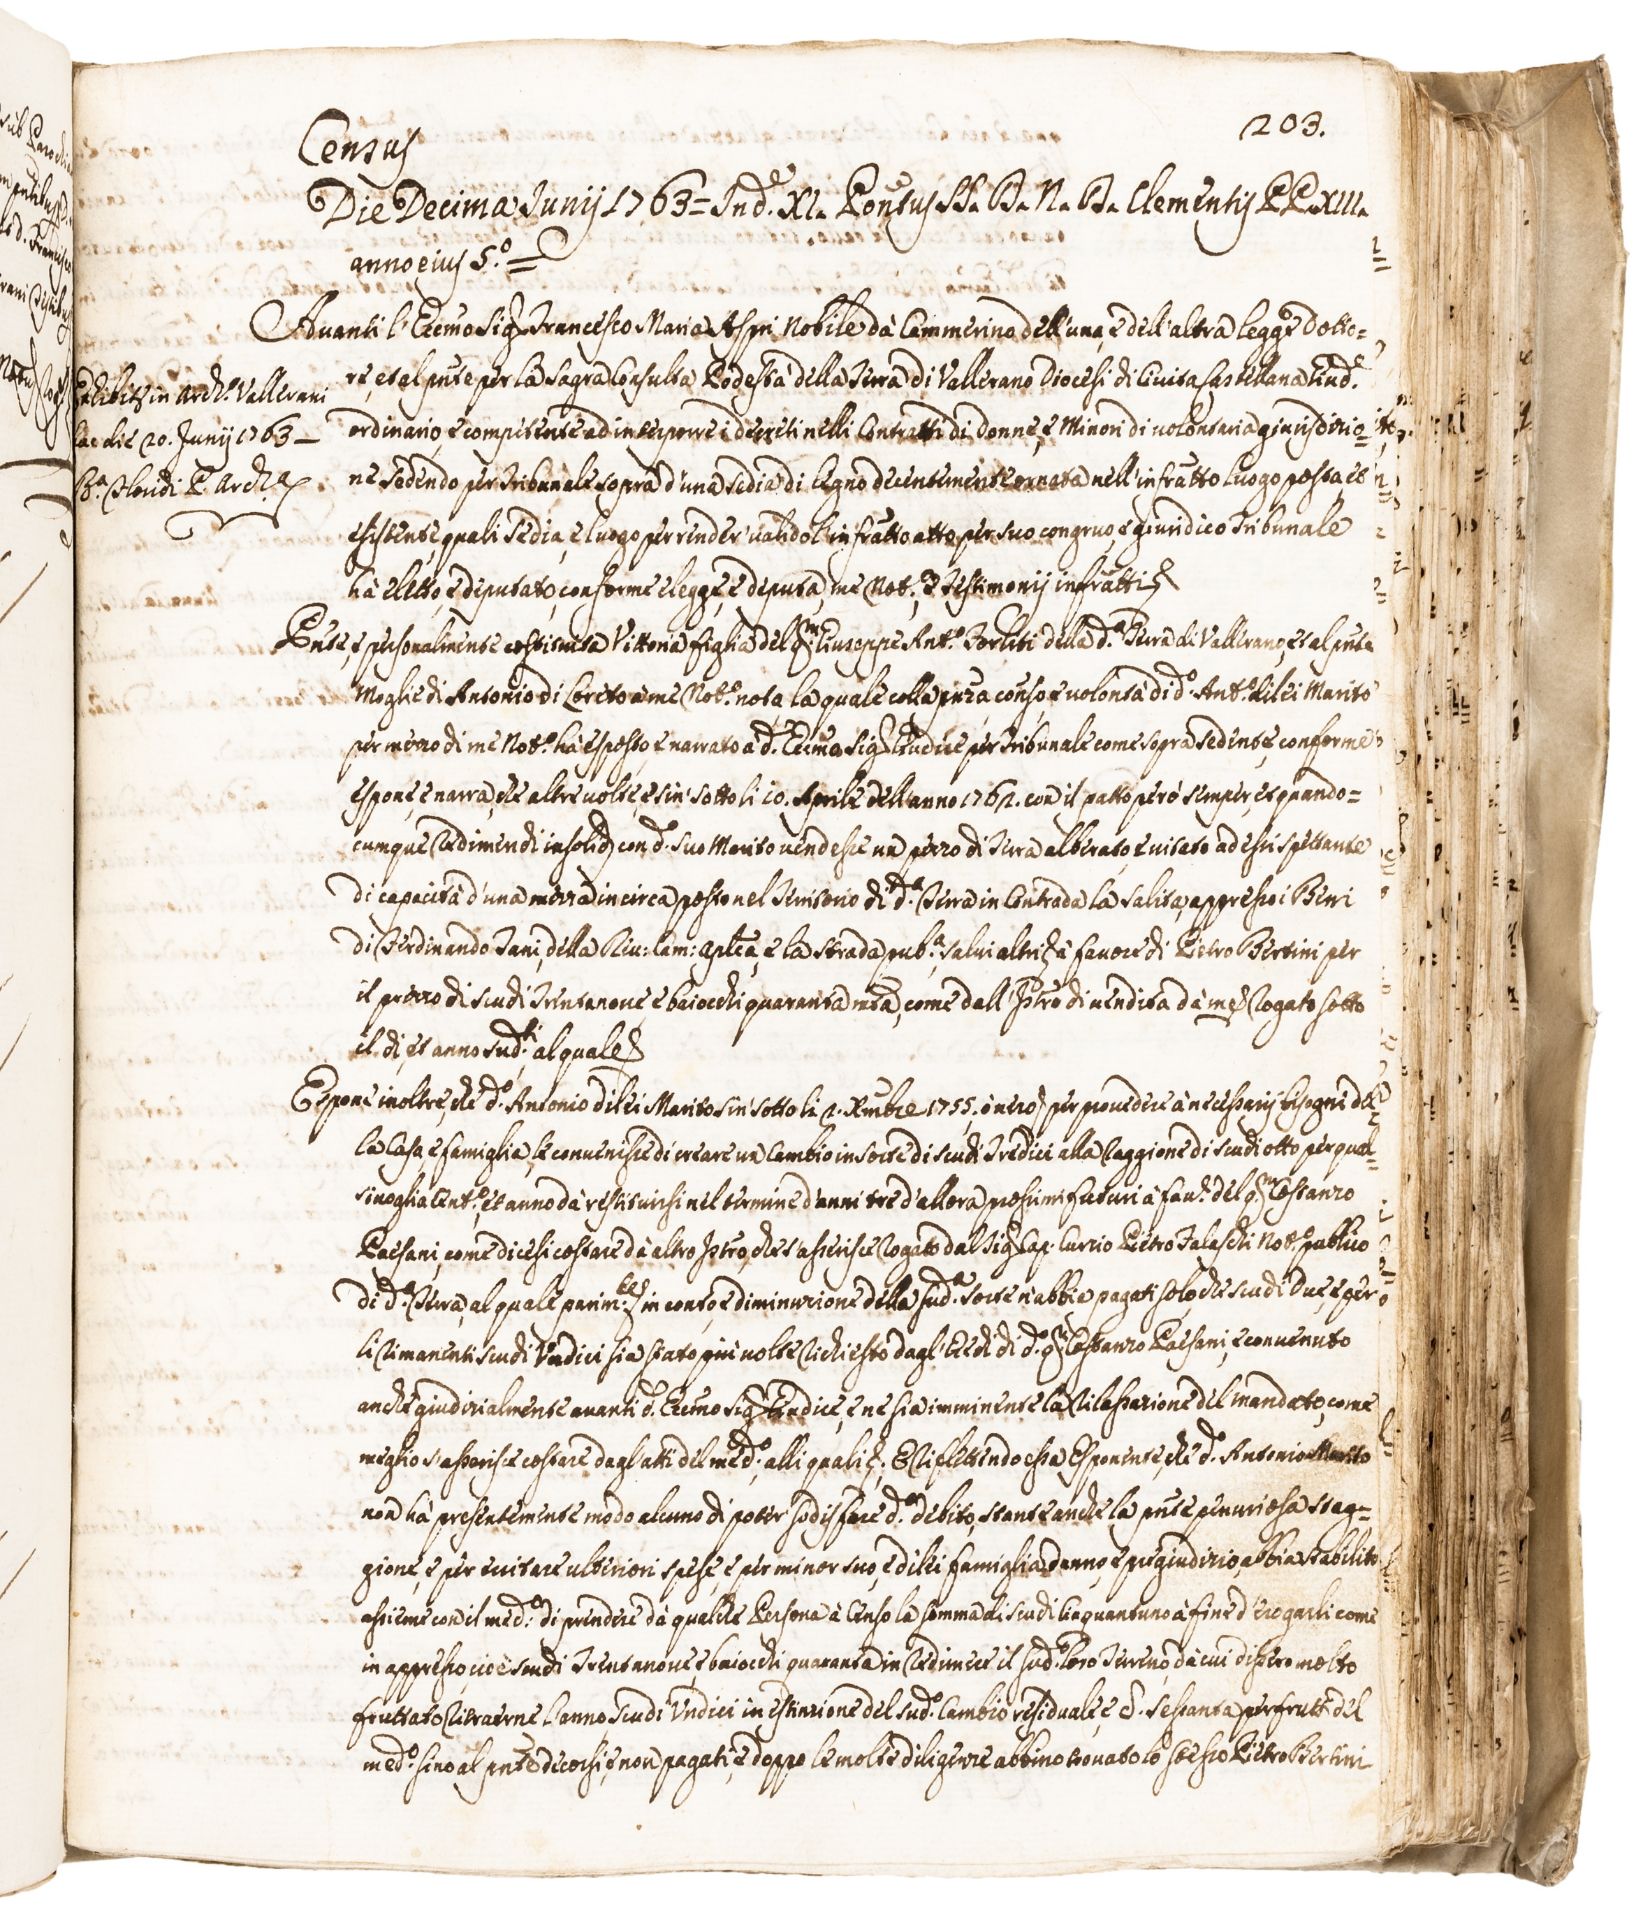 203.
Census
Die Decima Junij 1763 = Ind.e XI. Pontus SS. D. N. D. Clementis PP. XIII.
anno eius 5.o =
Avanti l'Eccmo Sig.r Francesco Maria Aspri Nobile da Cammerino dell'una, e dell'altra legge Dotto=
re, et al pnte per la Sagra Consulta Podestà della Terra di Vallerano Diocesi di Civita Castellana Giud.e
ordinario, e competente ad interporre i decreti nelli Contratti di Donne, e Minori di volontaria giurisdizio=
ne sedendo per Tribunale sopra d'una sedia di legno decentemente ornata nell'infratto luogo posta et
esistente, quali sedia, e luogo per render valido l'infratto atto, per suo congruo, e giuridico Tribunale
hà eletto, e deputato, conforme elegge, e deputa, me Not.o, e Testimonij infratti
Pnte, e personalmente costituita Vittoria figlia del q.m Giuseppe Ant.o Forliti della d.a Terra di Vallerano, et al pnte
Moglie di Antonio di Loreto a me Not.o nota, la quale colla pnza, conso, e volontà di d.o Ant.o di lei Marito
per mezzo di me Not.o hà esposto, e narrato a d.o Eccmo Sig.r Giudice per Tribunale come sopra sedente, conforme
espone, e narra, che altre volte, e sin' sotto li 10. Aprile dell'anno 1761. con il patto però semper, et quando=
cumque redimendi insolid con d.o suo Marito vendesse un pezzo di Terra alberato, e vitato ad essi spettante
di capacità d'una mezza in circa posto nel Territorio di d.a Terra in Contrada la Salita, appresso i Beni
di Ferdinando Jani, della Rev: Cam: Aplca, e la strada pub.a, salvi altri à favore di Pietro Bertini per
il prezzo di scudi Trentanove e baiocchi quaranta mta, come dall'Istro di vendita da me Rogato sotto
il dì, et anno sud.i al quale
Espone inoltre, che d.o Antonio di lei Marito sin' sotto li 2. Xmbre 1755. ò vero per provedere à necessarij bisogni del=
la Casa, e famiglia, le convenisse di creare un Cambio in sorte di scudi Tredici alla raggione di scudi otto per qual=
sivoglia Cent.o, et anno da restituirsi nel termine d'anni tre d'allora prossimi futuri à fav.e del q.m Costanzo
Paesani, come dicesi costare da altro Istro, che s'asserisce Rogato dal Sig.r Cap. Curzio Pietro Falaschi Not.o publico
di d.a Terra, al quale parim.te in conto, e diminuzione della sud.a sorte n'abbia pagati solo che scudi Due, e per
li rimanenti scudi Undici sia stato più volte richiesto dagl'Eredi di d.o q.m Costanzo Paesani, e convenuto
anche giudizialmente avanti d.o Eccmo Sig.r Giudice, e ne sia imminente la rilassazione del mandato, come
meglio s'asserisce costare dagl'atti del med.o, alli quali. E riflettendo essa Esponente, che d.o Antonio Marito
non hà presentemente modo alcuno di poter sodisfare d.o debito, stante anche la pnte penuriosa stag=
gione, e per evitare ulteriori spese, e per minor suo, e di lei famiglia danno, e pregiudizio, abbia stabilito
assieme con il med.o di prendere da qualche Persona à Censo la somma di scudi Cinquantuno à fine d'erogarli come
in appresso, cioè scudi Trentanove, e baiocchi quaranta in redimere il sud.o loro Terreno, da cui dissero molto
fruttato ritraerne l'anno scudi Undici in estinzione del sud.o Cambio residuale, e b. sessanta per frutti del
med.o sino al pnte decorsi, e non pagati, e doppo le molte diligenze abbino trovato lo stesso Pietro Bertini
Exhibit in Arch.o Vallerani
hac die 20. Junij 1763 —